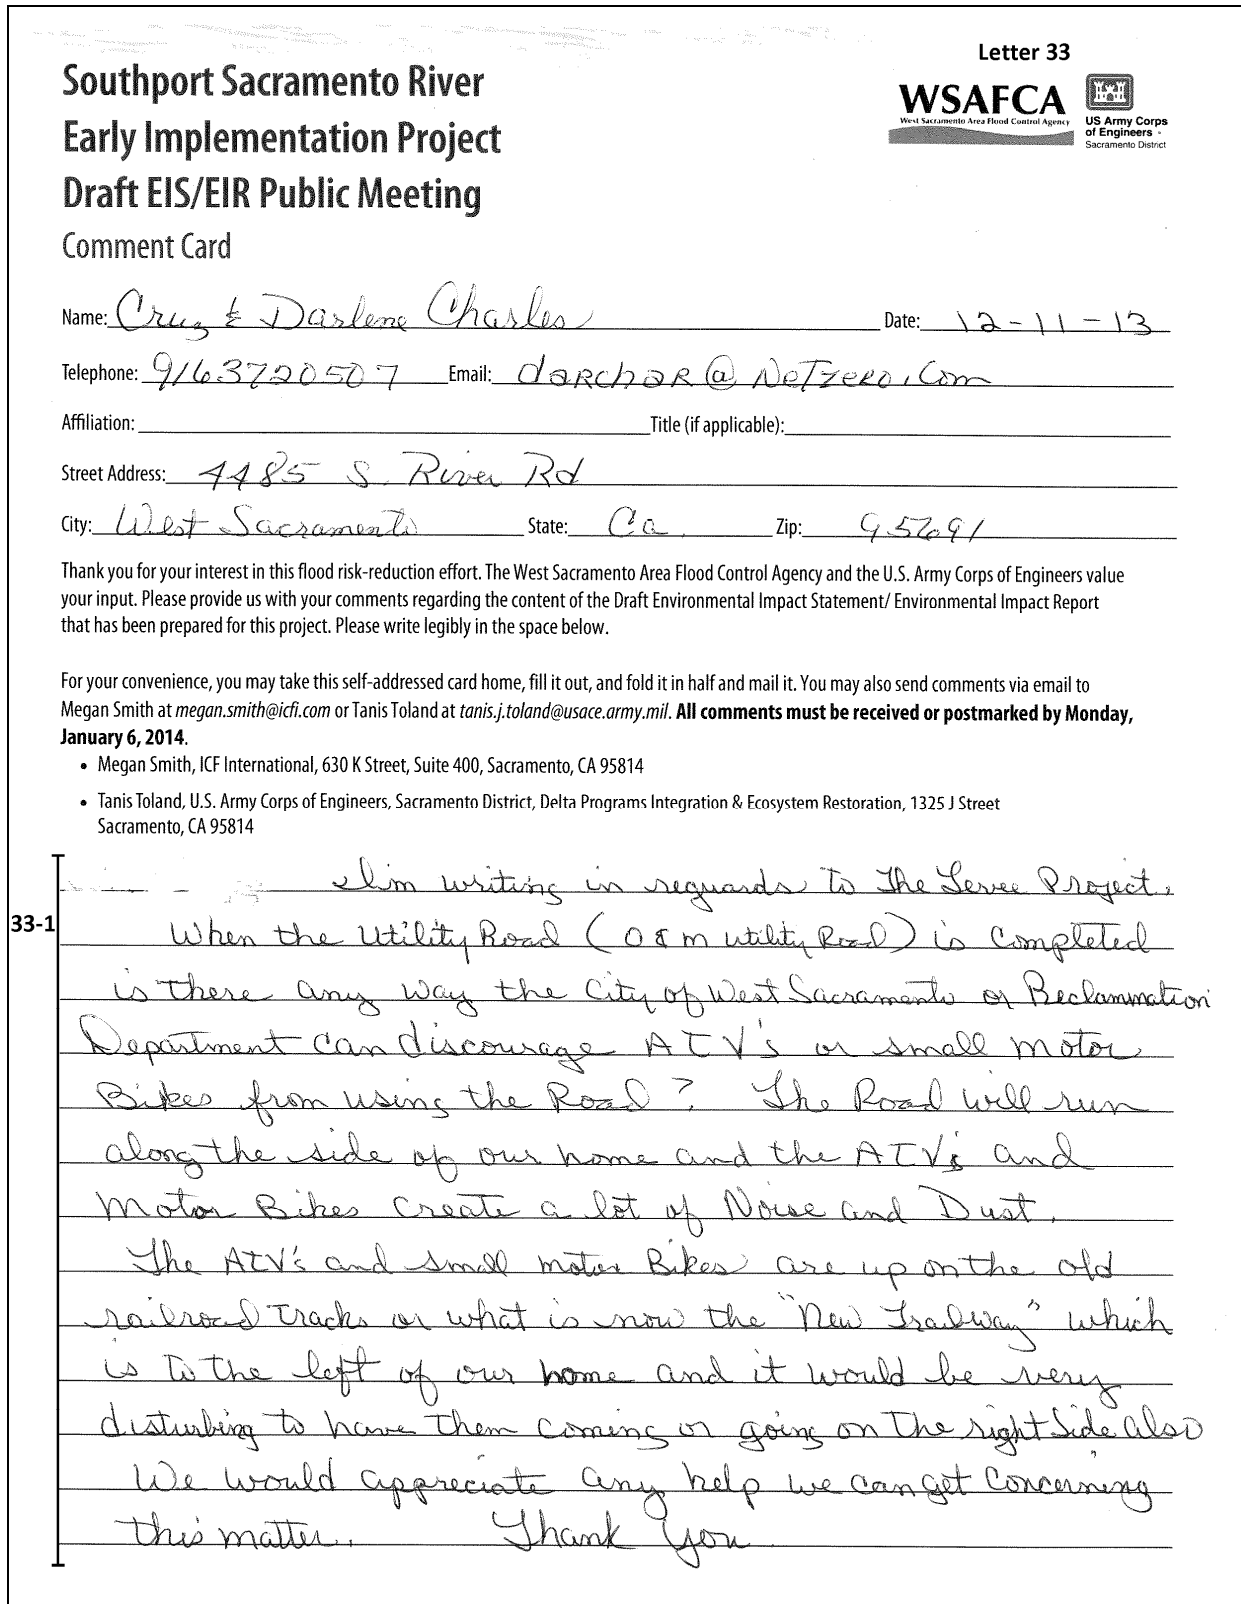 Letter 33
Southport Sacramento River
Early Implementation Project
Draft EIS/EIR Public Meeting
Comment Card
WSAFCA
West Sacramento Area Flood Control Agency
US Army Corps
of Engineers
Sacramento District
Name: Cruz & Darlene Charles Date: 12-11-13
Telephone: 9163720507 Email: darchar@Netzero.Com
Affiliation: Title (if applicable):
Street Address: 4485 S. River Rd
City: West Sacramento State: Ca. Zip: 95691
Thank you for your interest in this flood risk-reduction effort. The West Sacramento Area Flood Control Agency and the U.S. Army Corps of Engineers value
your input. Please provide us with your comments regarding the content of the Draft Environmental Impact Statement/ Environmental Impact Report
that has been prepared for this project. Please write legibly in the space below.
For your convenience, you may take this self-addressed card home, fill it out, and fold it in half and mail it. You may also send comments via email to
Megan Smith at megan.smith@icfi.com or Tanis Toland at tanis.j.toland@usace.army.mil. All comments must be received or postmarked by Monday,
January 6, 2014.
• Megan Smith, ICF International, 630 K Street, Suite 400, Sacramento, CA 95814
• Tanis Toland, U.S. Army Corps of Engineers, Sacramento District, Delta Programs Integration & Ecosystem Restoration, 1325 J Street
Sacramento, CA 95814
I'm writing in reguards to The Levee Project.
33-1
When the Utility Road (O & M utility Road) is Completed
is there any way the City of West Sacramento or Reclammation
Department can discourage ATV's or small motor
Bikes from using the Road? The Road will run
along the side of our home and the ATV's and
Motor Bikes create a lot of Noise and Dust.
The ATV's and small motor Bikes are up on the old
railroad tracks or what is now the "New Trailway" which
is to the left of our home and it would be very
disturbing to have them coming or going on the right side also
We would appreciate any help we can get concerning
this matter. Thank You